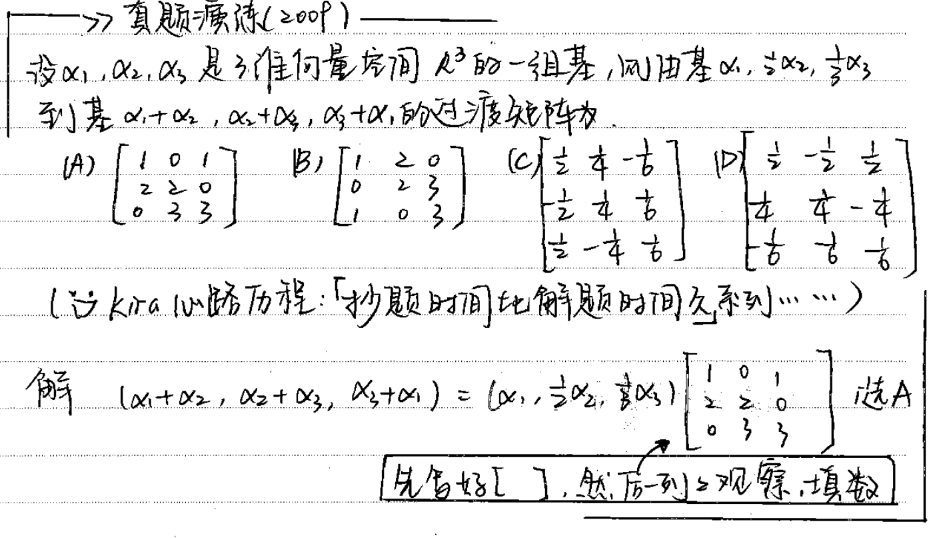 >> 真题演练(2009)
设α₁,α₂,α₃是3维向量空间 R³的一组基,则由基α₁,½α₂,⅓α₃
到基 α₁+α₂, α₂+α₃, α₃+α₁的过渡矩阵为.
(A) [1 0 1; 2 2 0; 0 3 3] (B) [1 2 0; 0 2 3; 1 0 3] (C) [½ ¼ -⅙; -½ ¼ ⅙; ½ -¼ ⅙] (D) [½ -½ ½; ¼ ¼ -¼; -⅙ ⅙ ⅙]
(kira心路历程:「抄题时间比解题时间久系列……)
解 (α₁+α₂, α₂+α₃, α₃+α₁) = (α₁, ½α₂, ⅓α₃) [1 0 1; 2 2 0; 0 3 3] 选A
先写好[ ],然后一列2观察,填数